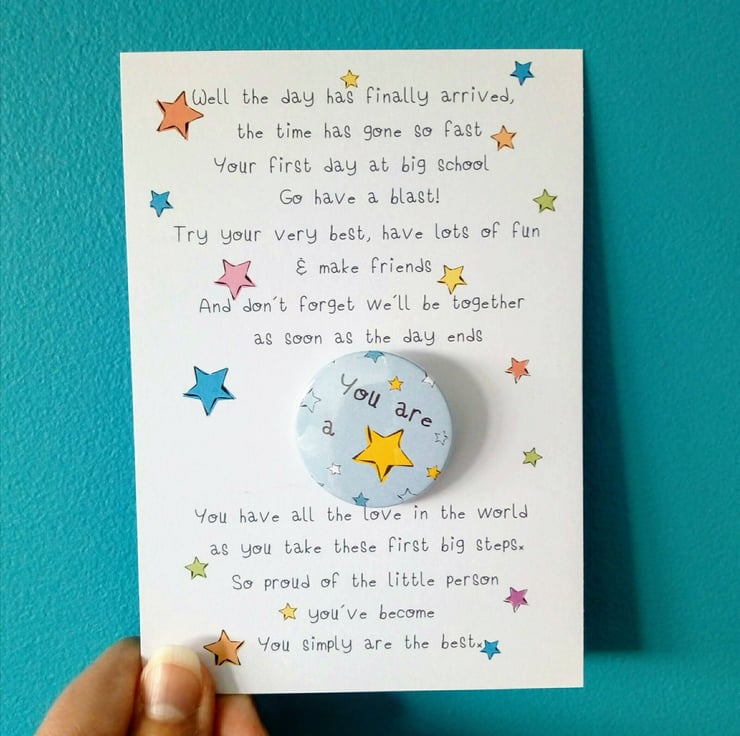 Well the day has finally arrived,
the time has gone so fast
Your first day at big school
Go have a blast!
Try your very best, have lots of fun
& make friends
And don't forget we'll be together
as soon as the day ends
You are
a
You have all the love in the world
as you take these first big steps x
So proud of the little person
you've become
You simply are the best x